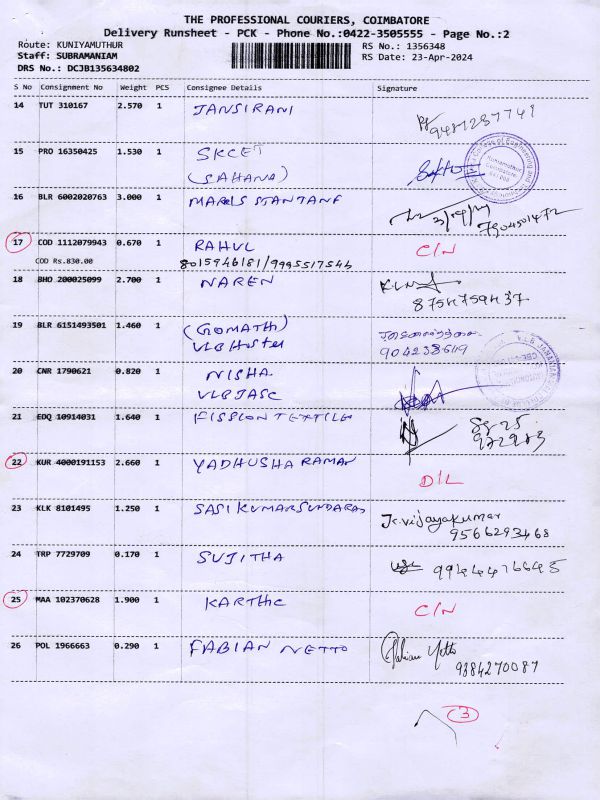 THE PROFESSIONAL COURIERS, COIMBATORE
Delivery Runsheet - PCK - Phone No.:0422-3505555 - Page No.:2
Route: KUNIYAMUTHUR
RS No.: 1356348
Staff: SUBRAMANIAM
RS Date: 23-Apr-2024
DRS No.: DCJB135634802
S No Consignment No Weight PCS Consignee Details Signature
14 TUT 310167 2.570 1 JANSIRANI
9487287741
15 PRO 16350425 1.530 1 SKCET
(SAHANA)
16 BLR 6002020763 3.000 1
7904501472
17 COD 1112079943 0.670 1 RAHUL C/N
COD Rs.830.00 8015946181/9995517546
18 BHO 200025099 2.700 1 NAREN
8754759437
19 BLR 6151493501 1.460 1 (GOMATHI)
VLB Hostel 9042386119
20 CNR 1790621 0.820 1 NISHA
VLBJASC
21 EDQ 10914031 1.640 1 FISSION TEXTILE
22 KUR 4000191153 2.660 1 YADHUSHA RAMAN
D/L
23 KLK 8101495 1.250 1 SASIKUMARSUNDARAS
K.Vijayakumar
9566293468
24 TRP 7729709 0.170 1 SUJITHA
9944476645
25 MAA 102370628 1.900 1 KARTHIC C/N
26 POL 1966663 0.290 1 FABIAN NETTO
Fabian Netto
9384270087
3